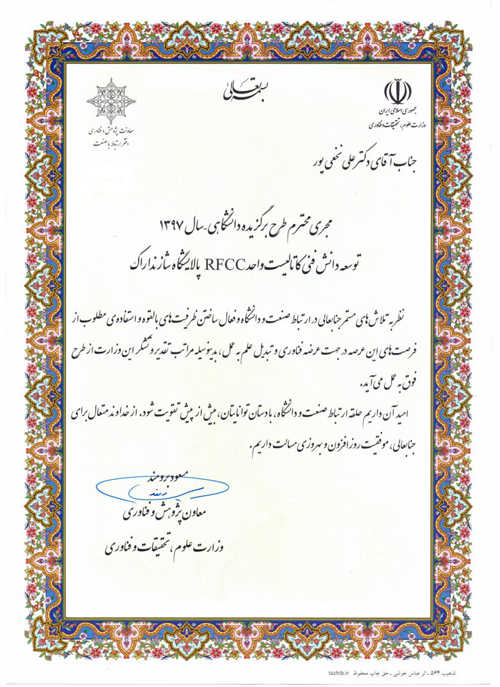 بسمه تعالی
جمهوری اسلامی ایران
وزارت علوم، تحقیقات و فناوری
معاونت پژوهش و فناوری
دفتر ارتباط با صنعت
جناب آقای دکتر علی نخعی پور
مجری محترم طرح برگزیده دانشگاهی-سال ۱۳۹۷
توسعه دانش فنی کاتالیست واحد RFCC پالایشگاه شازند اراک
نظر به تلاش های مستمر جنابعالی در ارتباط صنعت و دانشگاه و فعال ساختن ظرفیت های بالقوه و استفاده ی مطلوب از
فرصت های این عرصه در جهت عرضه فناوری و تبدیل علم به عمل، بدینوسیله مراتب تقدیر و تشکر این وزارت از طرح
فوق به عمل می آید.
امید آن داریم حلقه ارتباط صنعت و دانشگاه، با دستان توانایتان، بیش از پیش تقویت شود. از خداوند متعال برای
جنابعالی، موفقیت روز افزون و بهروزی مسالت داریم.
مسعود برومند
معاون پژوهش و فناوری
وزارت علوم، تحقیقات و فناوری
تذهیب ۵۶۴ - اثر عباس خوشی - حق چاپ محفوظ tazhib.ir